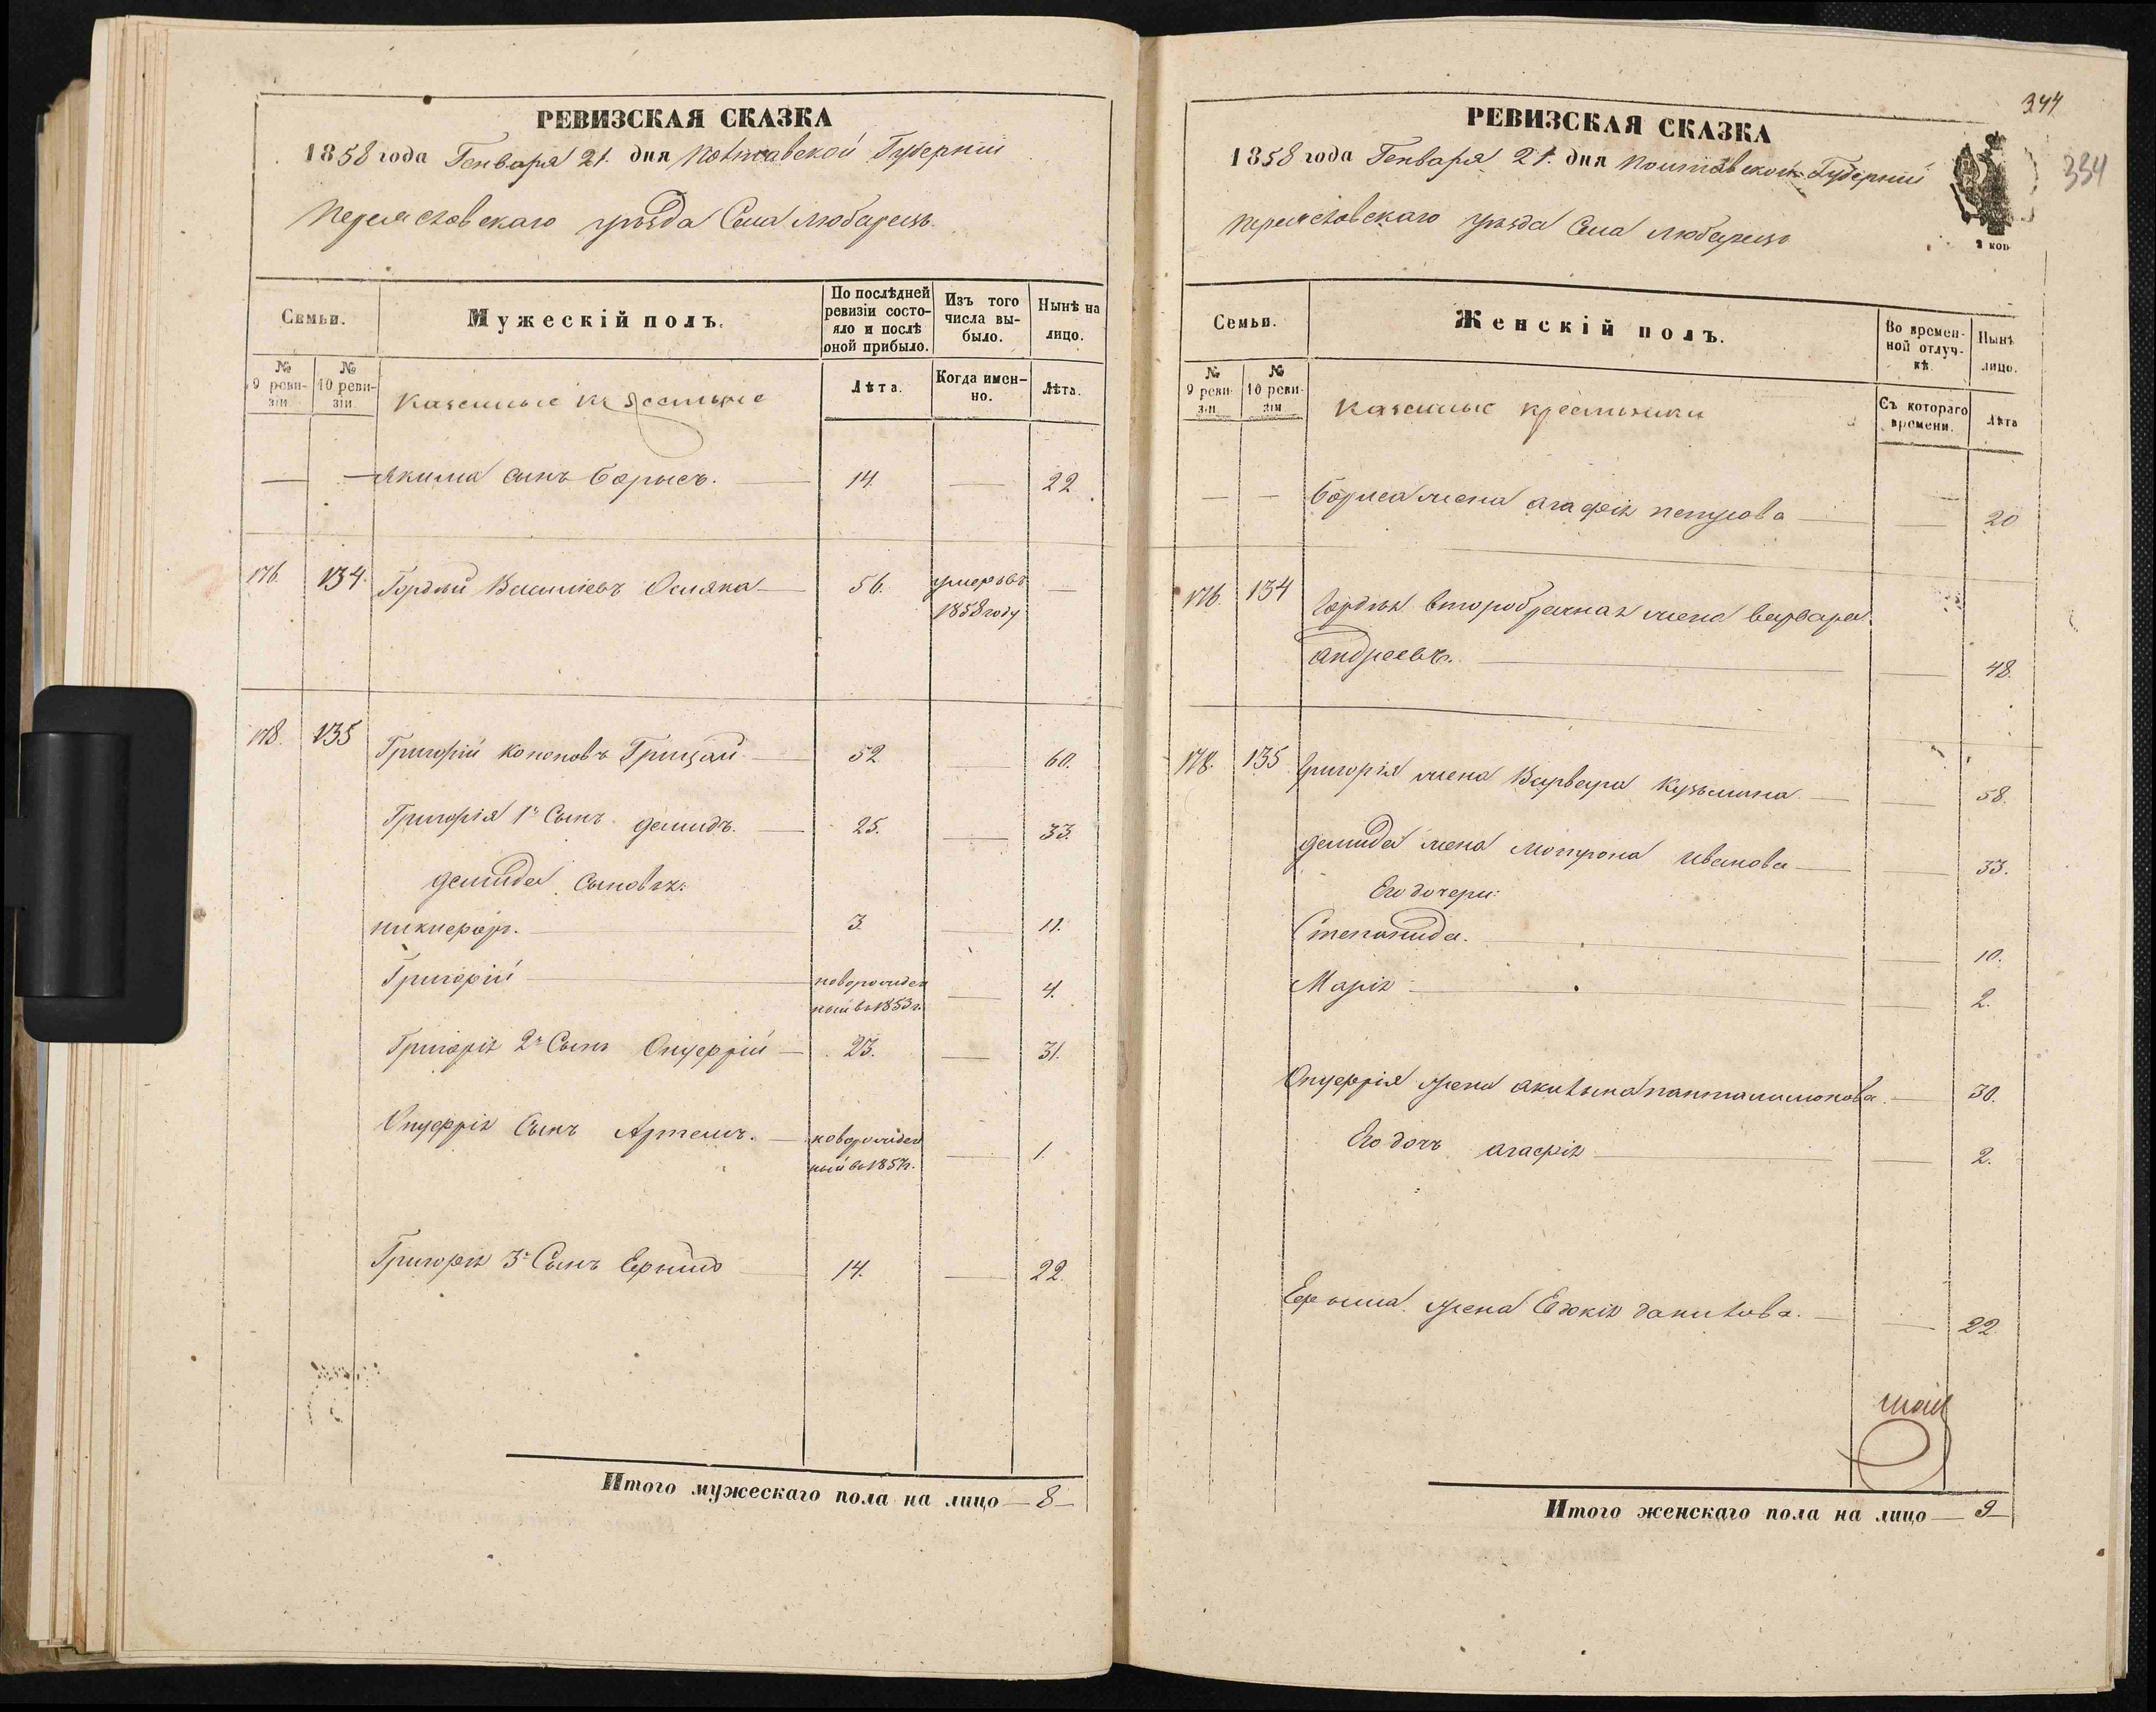 РЕВИЗСКАЯ СКАЗКА
1858 года Генваря 21. дня Полтавской Губерніи
Переяславскаго уѣзда Села Любарець.
Семьи.
Мужескій полъ.
По послѣдней ревизіи состояло и послѣ оной прибыло.
Изъ того числа выбыло.
Нынѣ на лицо.
№ 9 ревизіи
№ 10 ревизіи
Казенные крестьяне
Лѣта.
Когда именно.
Лѣта.
— — Якима сынъ Борисъ. 14. — 22.
176. 134. Гордѣй Васильевъ Осияка 56. умеръ въ —
1858 году
178. 135 Григорій Кононовъ Грицай 52 — 60.
Григорія 1й Сынъ Демидъ. 25. — 33.
Демида Сыновья:
Никифоръ. 3. — 11.
Григорій новорожден — 4.
ный въ 1853 г.
Григорія 2й Сынъ Онуфрій 23. — 31.
Онуфрія Сынъ Артемъ. новорожден — 1.
ный въ 1857 г.
Григорія 3й Сынъ 14. — 22.
Итого мужескаго пола на лицо — 8 —
344
334
РЕВИЗСКАЯ СКАЗКА
1858 года Генваря 21. дня Полтавской Губерніи
Переяславскаго уѣзда Села Любарець
2 коп
Семьи.
Женскій полъ.
Во временной отлучкѣ.
Нынѣ лицо.
№ 9 ревизіи
№ 10 ревизіи
Казенные крестьянки
Съ котораго времени.
Лѣта
— — Бориса жена Агафія Петрова — 20
176. 134 Гордѣя второбрачная жена Варвара
Андреева. — 48.
178. 135 Григорія жена Варвара Кузьмина — 58.
Демида жена Мотрона Иванова — 33.
Его дочери:
Степанида. — 10.
Марія — 2.
Онуфрія жена Акилина Панталимонова. — 30.
Его дочь Агафія — 2.
жена Евдокія Данилова. — 22.
Итого женскаго пола на лицо — 9 —